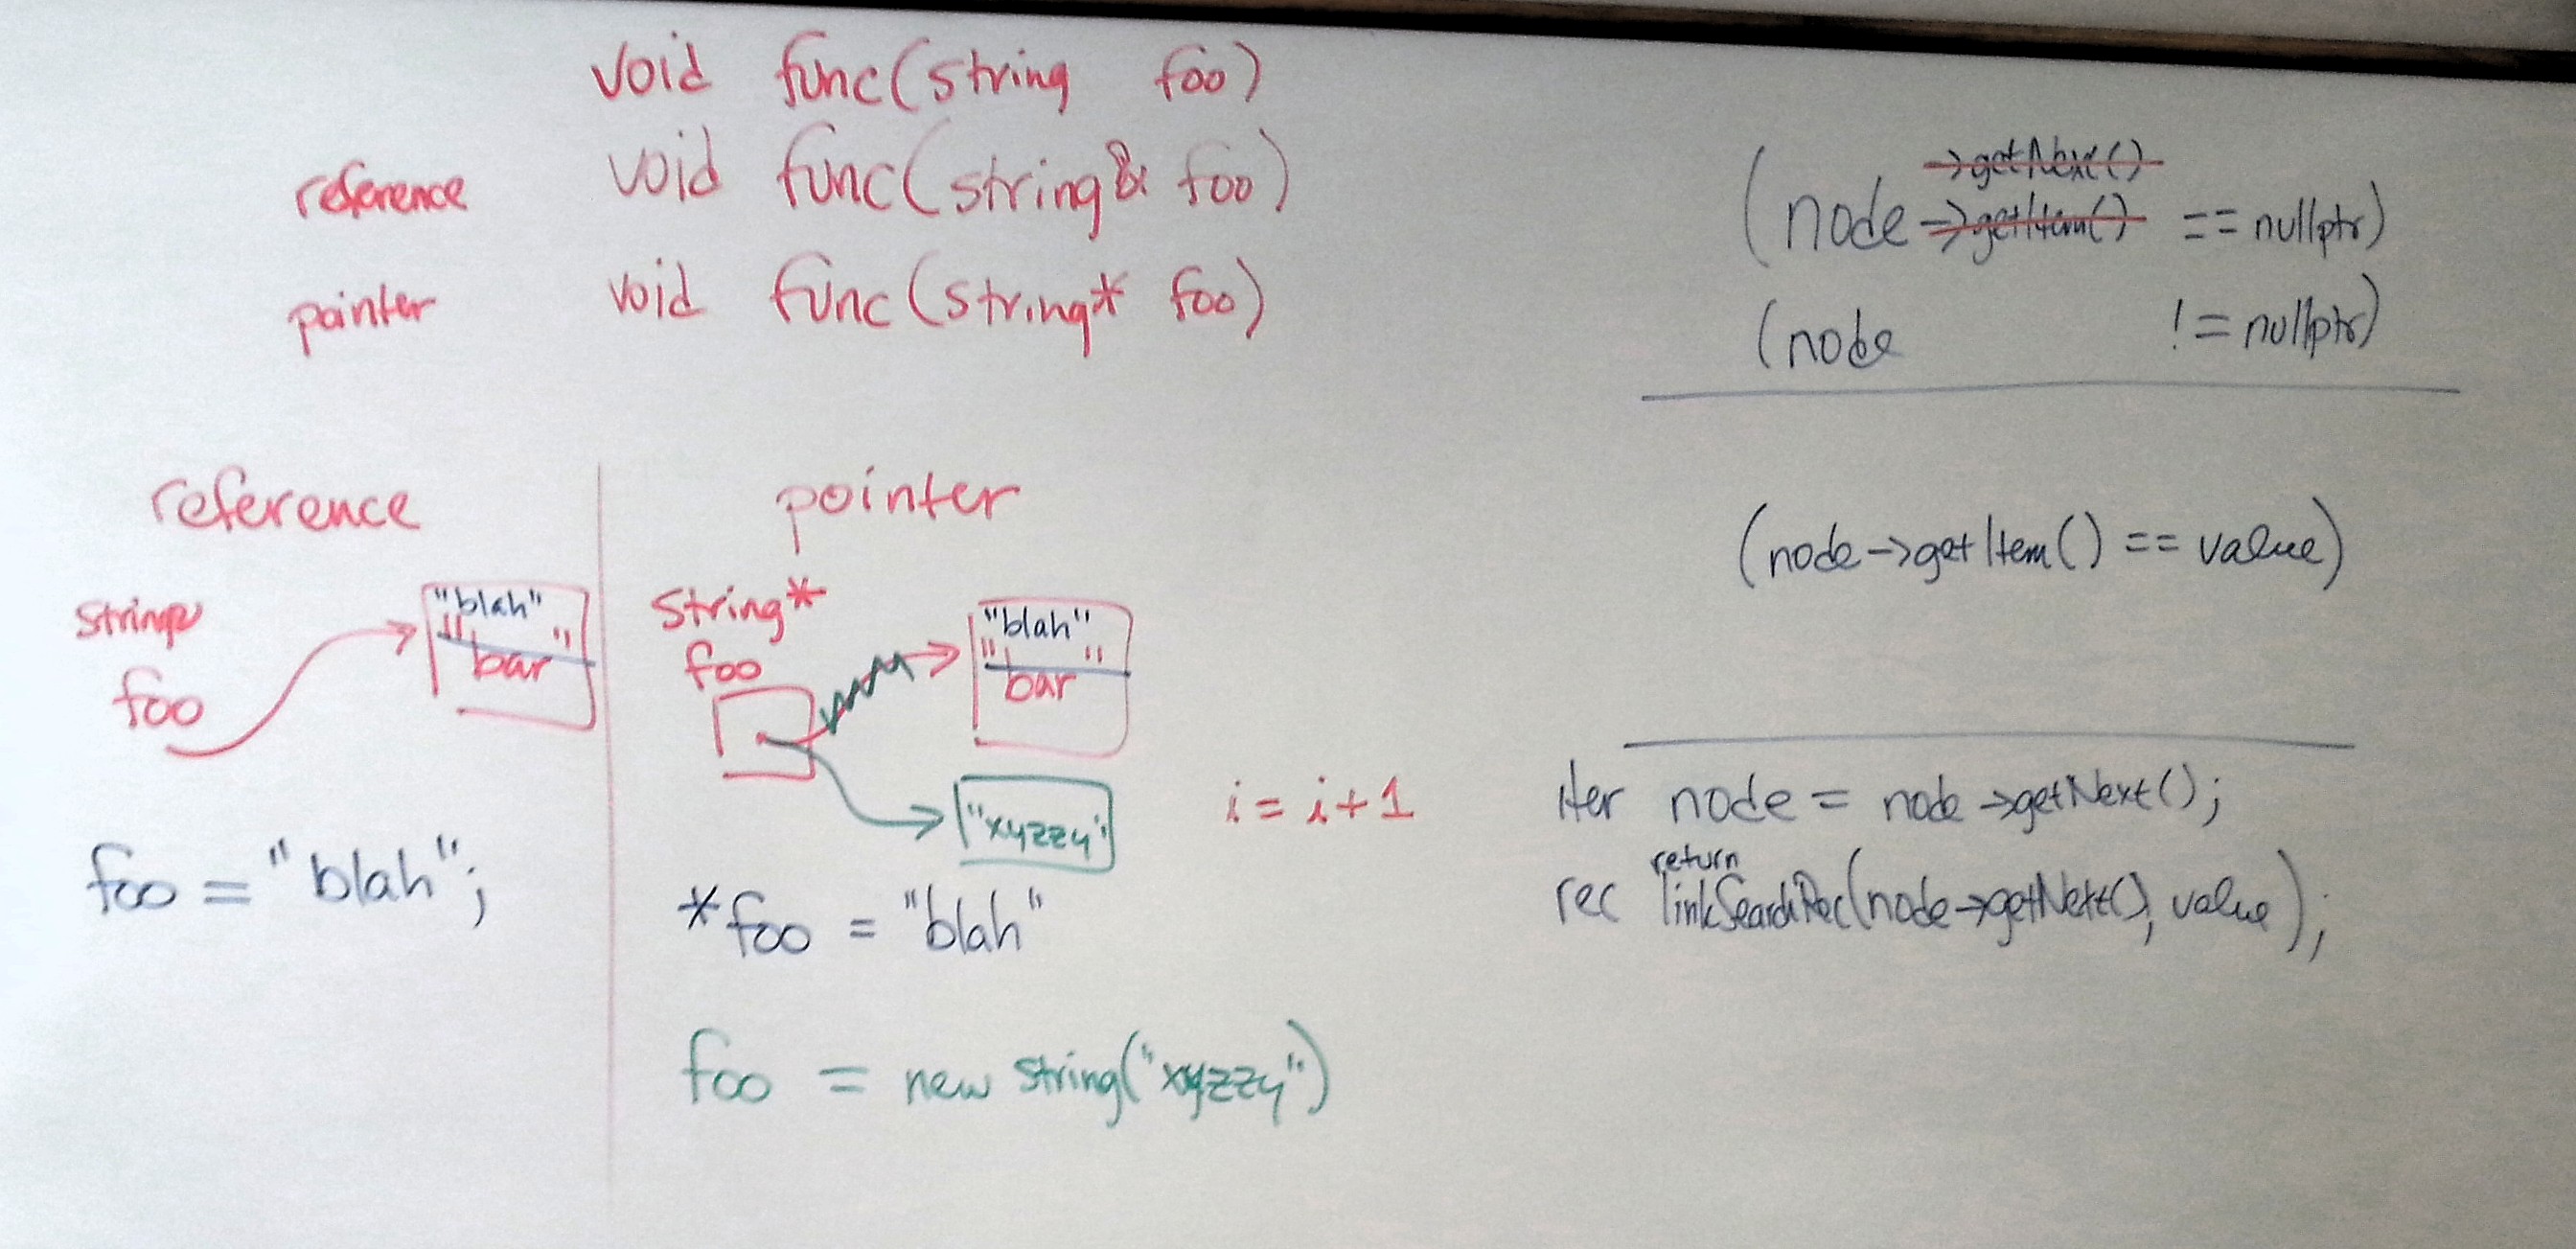 void func(string foo)
reference void func(string& foo)
pointer void func(string* foo)
reference
string&
foo
"blah"
"bar"
foo = "blah";
pointer
string*
foo
"blah"
"bar"
"xyzzy"
*foo = "blah"
foo = new string("xyzzy")
i = i+1
->getNext()
(node->getItem() == nullptr)
(node != nullptr)
(node->getItem() == value)
iter node = node->getNext();
return
rec linkSearchRec(node->getNext(), value);